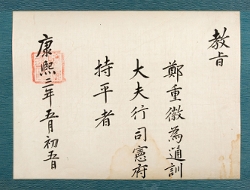 教旨
鄭重徽為通訓
大夫行司憲府
持平者
康熙二年五月初五日